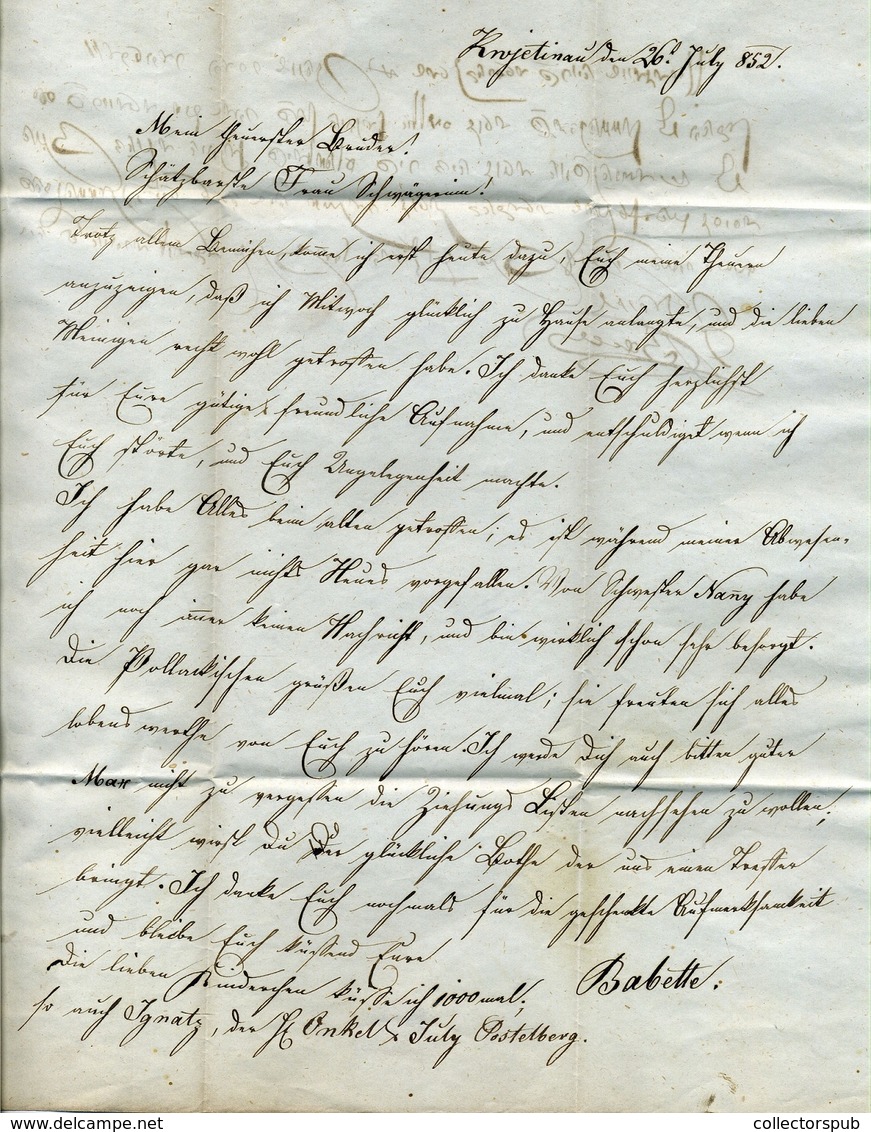 Kwjetinau den 26t July 852.
Mein theuerster Bruder!
Schätzbarste Frau Schwägerinn!
Trotz allem Bemühen, kom̅e ich erst heute dazu, Euch meine Theuern
anzuzeigen, daß ich Mitwoch glücklich zu Hause anlangte, und die lieben
Meinigen recht wohl getroffen habe. Ich danke Euch herzlichst
für Eure gütige & freundliche Aufnahme, und entschuldiget wenn ich
Euch störte, und Euch Ungelegenheit machte.
Ich habe Alles beim alten getroffen; es ist während meiner Abwesen-
heit hier gar nichts Neues vorgefallen. Von Schwester Nan̅y habe
ich noch im̅er keinen Nachricht, und bin wirklich schon sehr besorgt.
Die Pollackischen grüßen Euch vielmal; sie freuten sich alles
lobenswerthe von Euch zu hören. Ich werde Dich auch bitten guter
Max nicht zu vergessen die Ziehungs Listen nachsehen zu wollen;
vielleicht wirst Du der glückliche Bothe der uns einen Treffer
bringt. Ich danke Euch nochmals für die geschenkte Aufmerksamkeit
und bleibe Euch küssend Eure
Babette.
Die lieben Kinderchen küsse ich 1000mal;
so auch Ignatz, der H Onkel & July Postelberg.
collectorspub